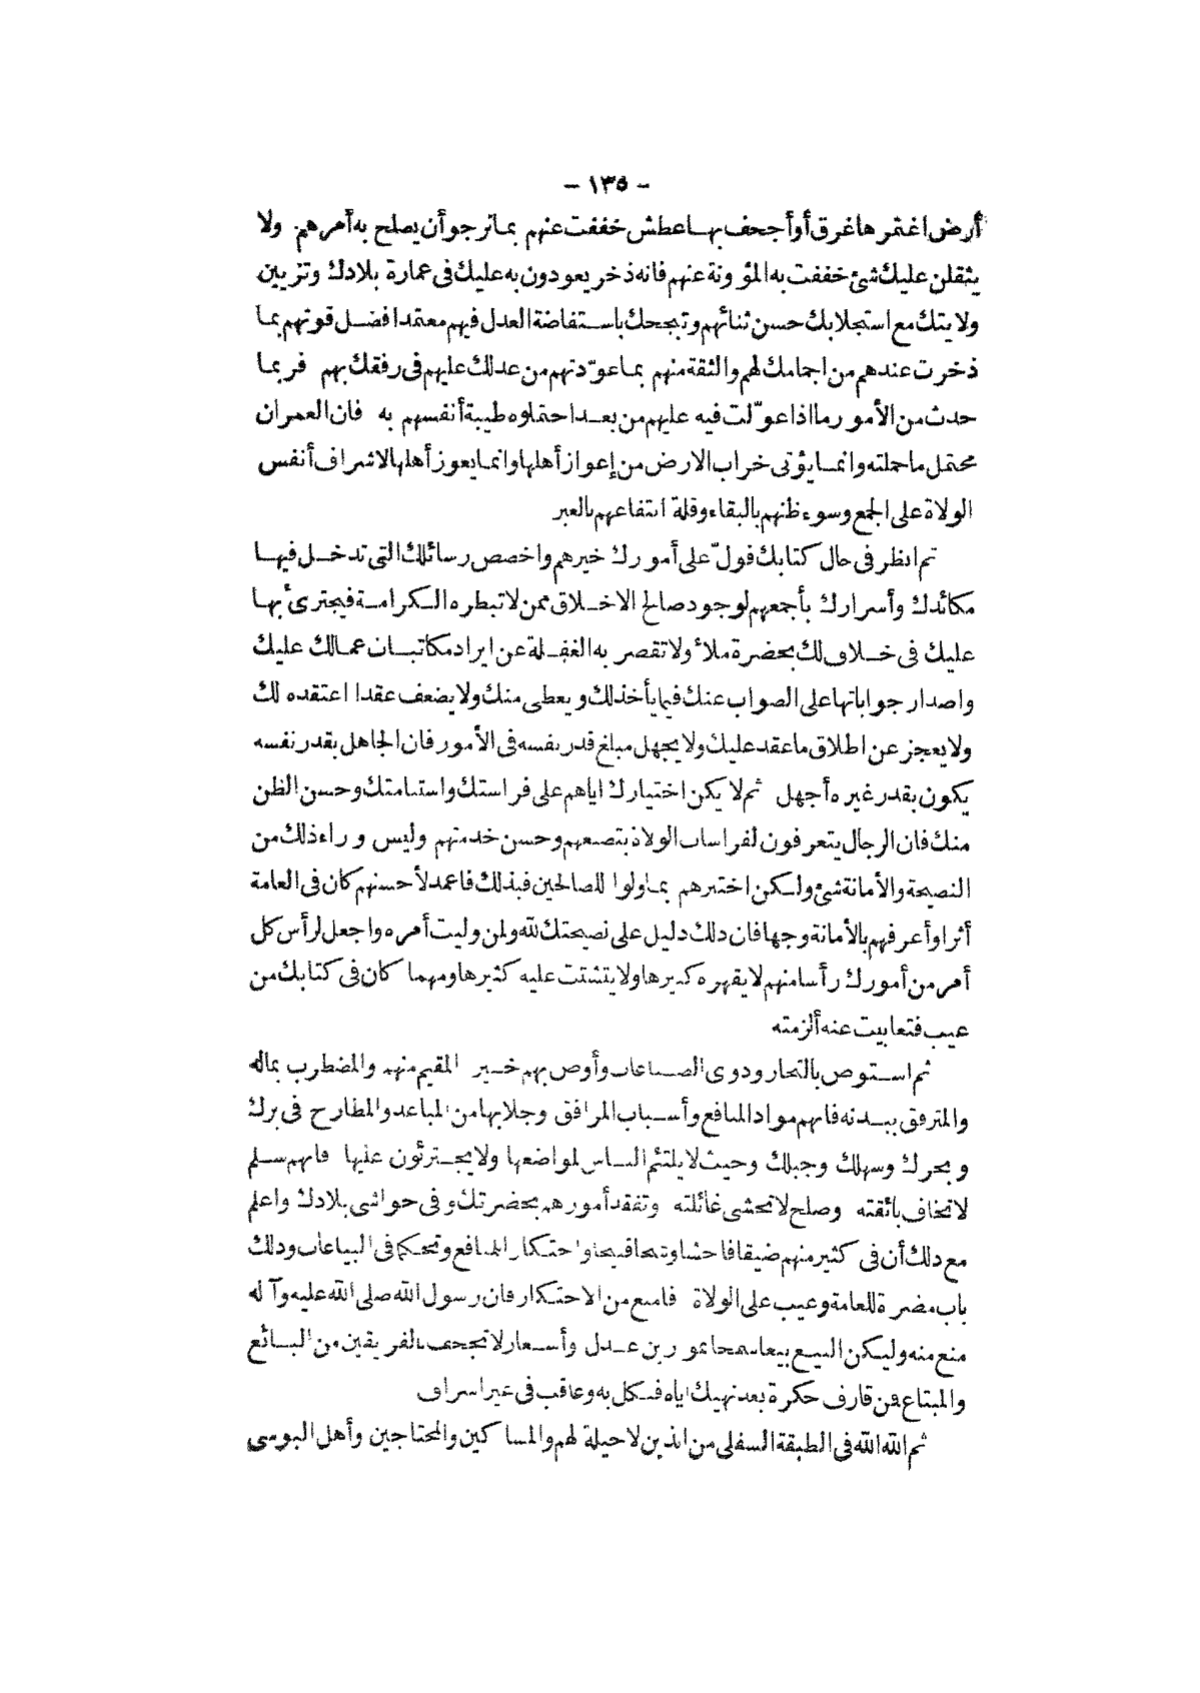 – ١٣٥ –
أرض اغتمرها غرق أو أجحف بها عطش خففت عنهم بما ترجو أن يصلح به أمرهم ولا
يثقلن عليك شئ خففت به المؤونة عنهم فانه ذخر يعودون به عليك فى عمارة بلادك وتزيين
ولايتك مع استجلابك حسن ثنائهم وتبجحك باستفاضة العدل فيهم معتمدا فضل قوتهم بما
ذخرت عندهم من اجمامك لهم والثقة منهم بما عوّدتهم من عدلك عليهم فى رفقك بهم فربما
حدث من الأمور ما اذا عوّلت فيه عليهم من بعد احتملوه طيبة أنفسهم به فان العمران
محتمل ما حملته وانما يؤتى خراب الارض من إعواز أهلها وانما يعوز أهلها لاشراف أنفس
الولاة على الجمع وسوء ظنهم بالبقاء وقلة انتفاعهم بالعبر
ثم انظر فى حال كتابك فولّ على أمورك خيرهم واخصص رسائلك التى تدخل فيها
مكائدك وأسرارك بأجمعهم لوجود صالح الاخلاق ممن لا تبطره الكرامة فيجترئ بها
عليك فى خلاف لك بحضرة ملأ ولا تقصر به الغفلة عن ايراد مكاتبات عمالك عليك
واصدار جواباتها على الصواب عنك فيما يأخذ لك ويعطى منك ولا يضعف عقدا اعتقده لك
ولا يعجز عن اطلاق ما عقد عليك ولا يجهل مبلغ قدر نفسه فى الأمور فان الجاهل بقدر نفسه
يكون بقدر غيره أجهل ثم لا يكن اختيارك اياهم على فراستك واستنامتك وحسن الظن
منك فان الرجال يتعرفون لفراسات الولاة بتصنعهم وحسن خدمتهم وليس وراء ذلك من
النصيحة والأمانة شئ ولكن اختبرهم بما ولوا للصالحين قبلك فاعمد لأحسنهم كان فى العامة
أثرا وأعرفهم بالأمانة وجها فان ذلك دليل على نصيحتك لله ولمن وليت أمره واجعل لرأس كل
أمر من أمورك رأسا منهم لا يقهره كبيرها ولا يتشتت عليه كثيرها ومهما كان فى كتابك من
عيب فتغابيت عنه ألزمته
ثم استوص بالتجار وذوى الصناعات وأوص بهم خيرا المقيم منهم والمضطرب بماله
والمترفق ببدنه فانهم مواد المنافع وأسباب المرافق وجلابها من المباعد والمطارح فى برك
وبحرك وسهلك وجبلك وحيث لا يلتئم الناس لمواضعها ولا يجترئون عليها فانهم سلم
لا تخاف بائقته وصلح لا تخشى غائلته وتفقد أمورهم بحضرتك وفى حواشى بلادك واعلم
مع ذلك أن فى كثير منهم ضيقا فاحشا وشحا قبيحا واحتكارا للمنافع وتحكما فى البياعات وذلك
باب مضرة للعامة وعيب على الولاة فامنع من الاحتكار فان رسول الله صلى الله عليه وآله
منع منه وليكن البيع بيعا سمحا بموازين عدل وأسعار لا تجحف بالفريقين من البائع
والمبتاع فمن قارف حكرة بعد نهيك اياه فنكل به وعاقب فى غير اسراف
ثم الله الله فى الطبقة السفلى من الذين لا حيلة لهم والمساكين والمحتاجين وأهل البوسى